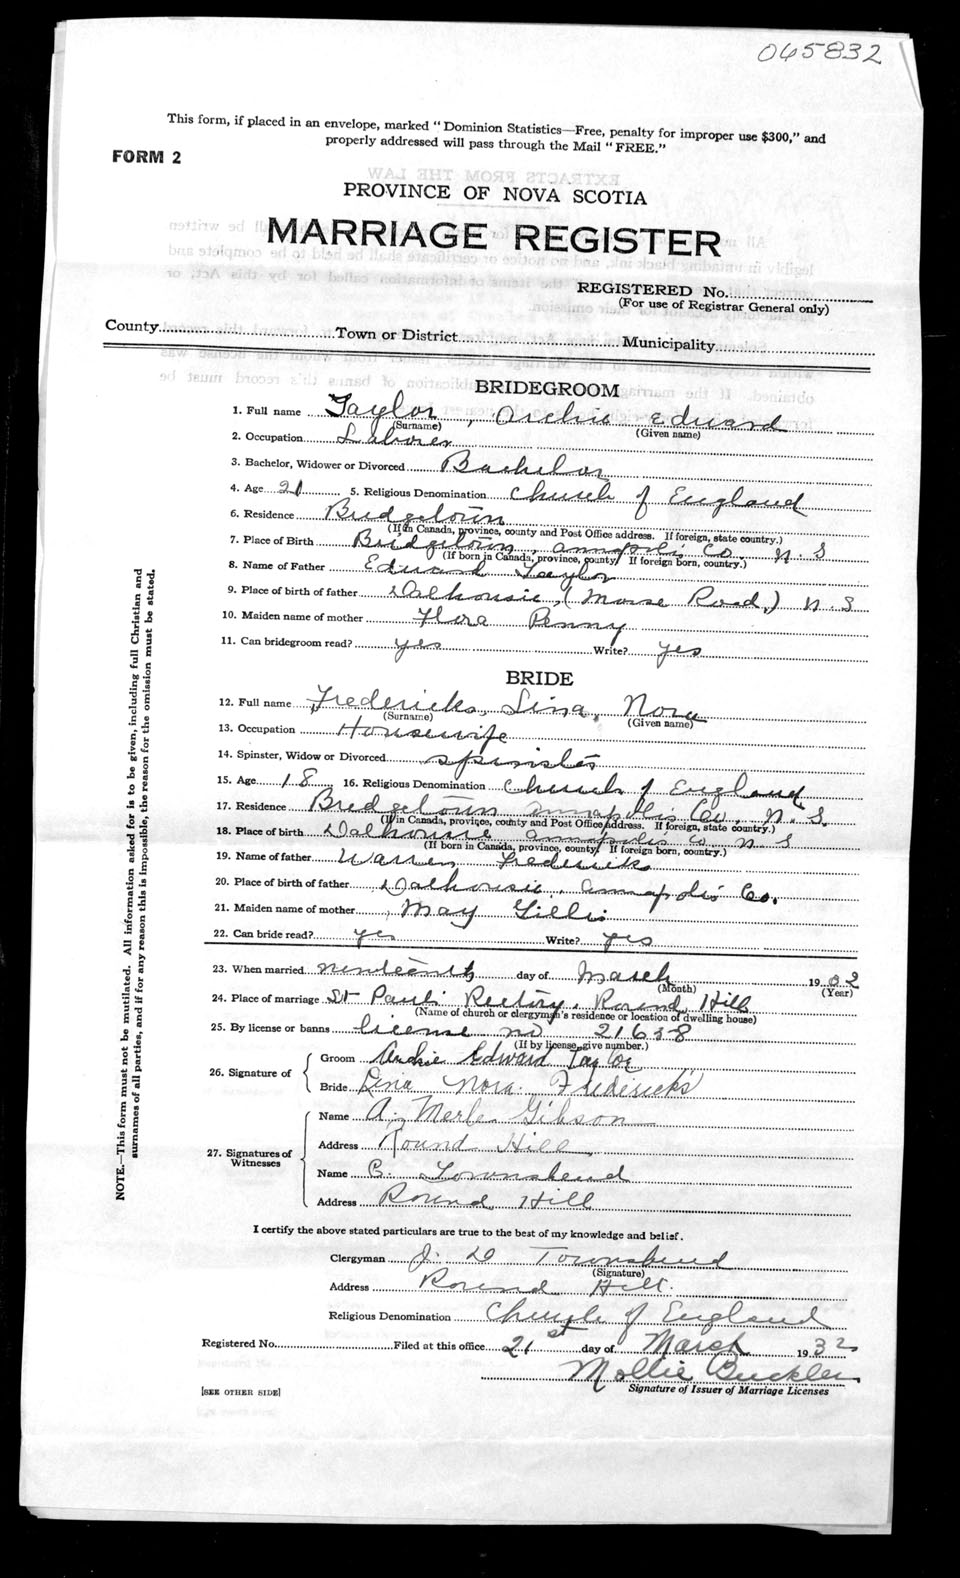 065832
This form, if placed in an envelope, marked "Dominion Statistics—Free, penalty for improper use $300," and
properly addressed will pass through the Mail "FREE."
FORM 2
PROVINCE OF NOVA SCOTIA
MARRIAGE REGISTER
REGISTERED No.
(For use of Registrar General only)
County Town or District Municipality
BRIDEGROOM
1. Full name Taylor, Archie Edward
(Surname) (Given name)
2. Occupation Laborer
3. Bachelor, Widower or Divorced Bachelor
4. Age 21 5. Religious Denomination Church of England
6. Residence Bridgetown
(If in Canada, province, county and Post Office address. If foreign, state country.)
7. Place of Birth Bridgetown, Annapolis Co. N S
(If born in Canada, province, county. If foreign born, country.)
8. Name of Father Edward Taylor
9. Place of birth of father Dalhousie, (Morse Road,) N S
10. Maiden name of mother Flora Penny
11. Can bridegroom read? yes Write? yes
BRIDE
12. Full name Fredericks, Lina, Nora
(Surname) (Given name)
13. Occupation Housewife
14. Spinster, Widow or Divorced spinster
15. Age 18 16. Religious Denomination Church of England
17. Residence Bridgetown Annapolis Co, N. S.
(If in Canada, province, county and Post Office address. If foreign, state country.)
18. Place of birth Dalhousie Annapolis Co N S
(If born in Canada, province, county. If foreign born, country.)
19. Name of father Warren Fredericks
20. Place of birth of father Dalhousie, Annapolis Co.
21. Maiden name of mother May Gillis
22. Can bride read? yes Write? yes
23. When married nineteenth day of March 1932
(Month) (Year)
24. Place of marriage St Paul's Rectory, Round Hill
(Name of church or clergyman's residence or location of dwelling house)
25. By license or banns license no 21638
(If by license, give number.)
26. Signature of Groom Archie Edward Taylor
Bride Lina Nora Fredericks
27. Signatures of Witnesses
Name A. Merle Gibson
Address Round Hill
Name C. Townshend
Address Round Hill
I certify the above stated particulars are true to the best of my knowledge and belief.
Clergyman J. D Townshend
(Signature)
Address Round Hill
Religious Denomination Church of England
Registered No. Filed at this office 21st day of March 1932
Mollie Buckler
Signature of Issuer of Marriage Licenses
[SEE OTHER SIDE]
NOTE.—This form must not be mutilated. All information asked for is to be given, including full Christian and
surnames of all parties, and if for any reason this is impossible, the reason for the omission must be stated.